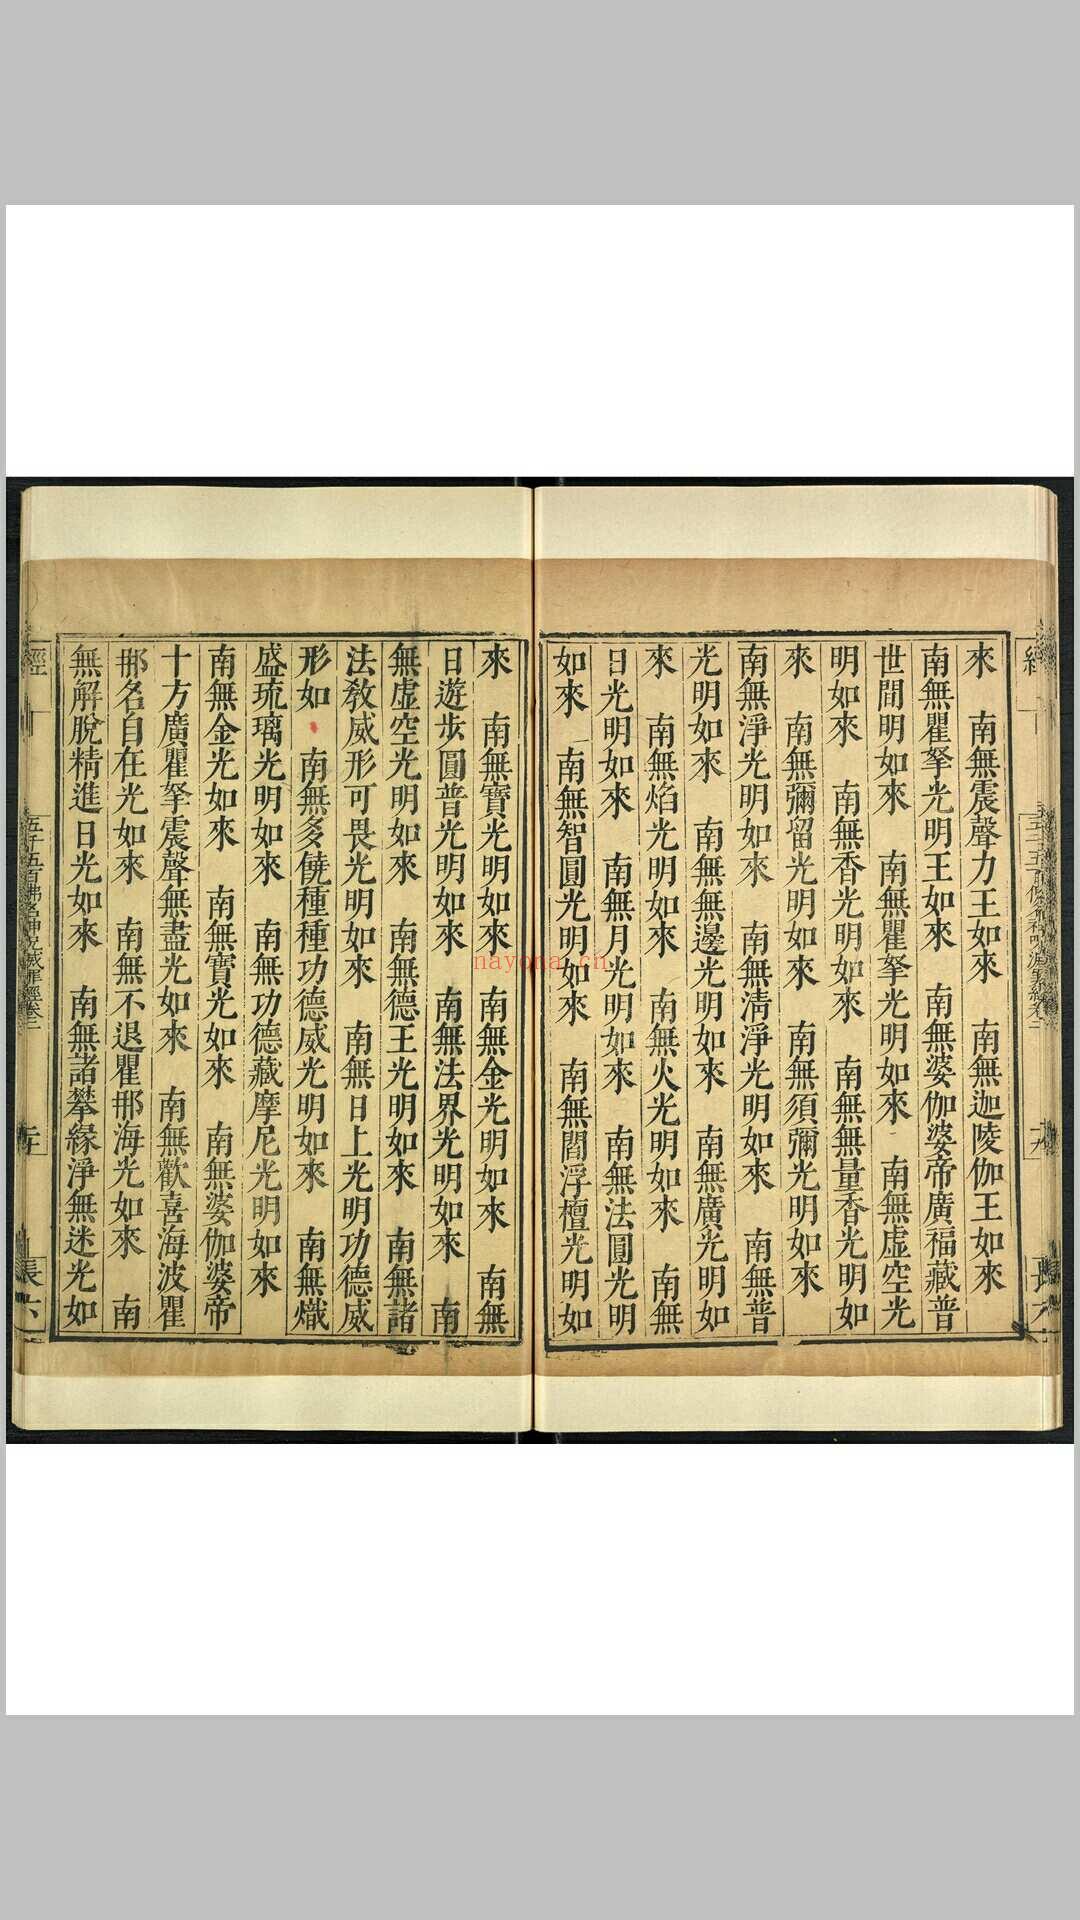 來　南無震聲力王如來　南無迦陵伽王如來
南無瞿拏光明王如來　南無婆伽婆帝廣福藏普
世間明如來　南無瞿拏光明如來　南無虛空光
明如來　南無香光明如來　南無無量香光明如
來　南無彌留光明如來　南無須彌光明如來
南無淨光明如來　南無清淨光明如來　南無普
光明如來　南無無邊光明如來　南無廣光明如
來　南無焰光明如來　南無火光明如來　南無
日光明如來　南無月光明如來　南無法圓光明
如來　南無智圓光明如來　南無閻浮檀光明如
來　南無寶光明如來　南無金光明如來　南無
日遊步圓普光明如來　南無法界光明如來　南
無虛空光明如來　南無德王光明如來　南無諸
法教威形可畏光明如來　南無日上光明功德威
形如　南無多饒種種功德威光明如來　南無熾
盛琉璃光明如來　南無功德藏摩尼光明如來
南無金光如來　南無寶光如來　南無婆伽婆帝
十方廣瞿拏震聲無盡光如來　南無歡喜海波瞿
那名自在光如來　南無不退瞿那海光如來　南
無解脫精進日光如來　南無諸攀緣淨無迷光如
經
五千五百佛名神呪滅罪經卷三
長六
nayona.cn